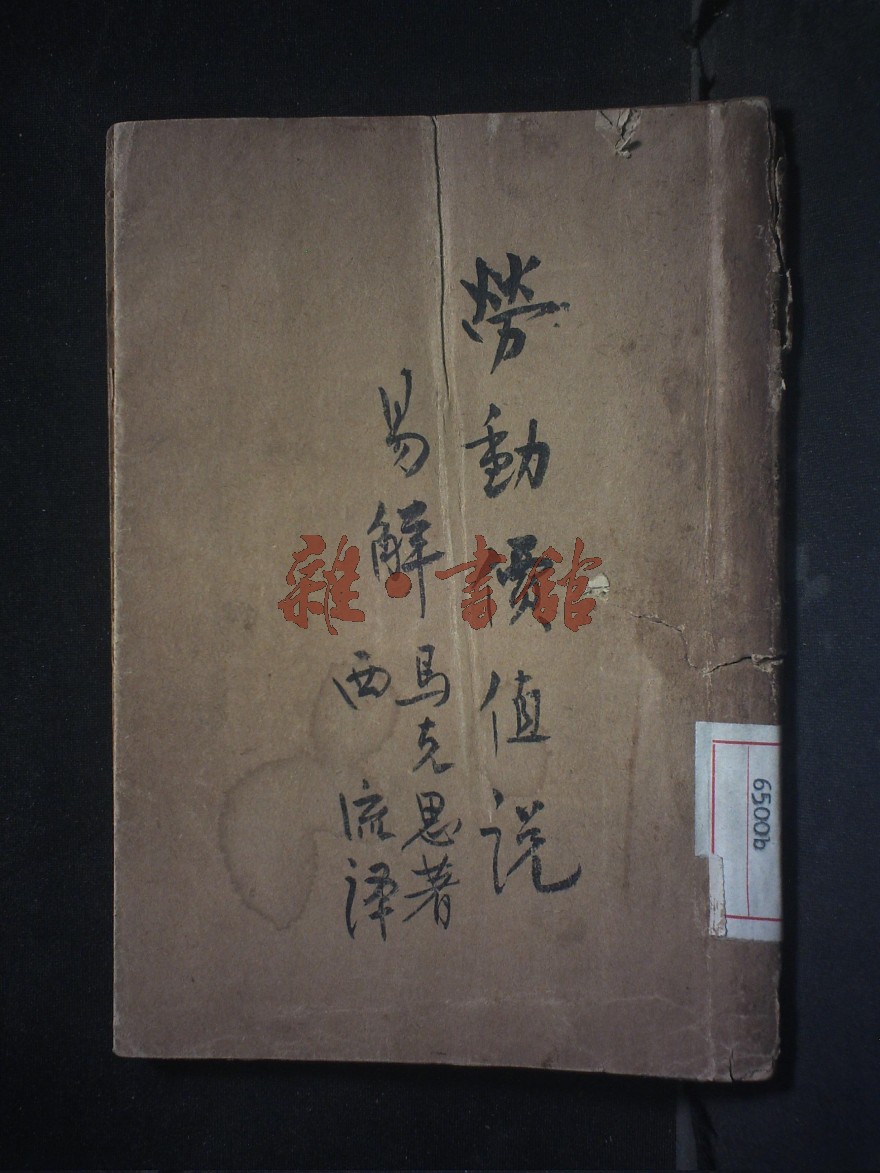 勞動價值说
易解
馬克思著
西流译
雜·書館
6500b